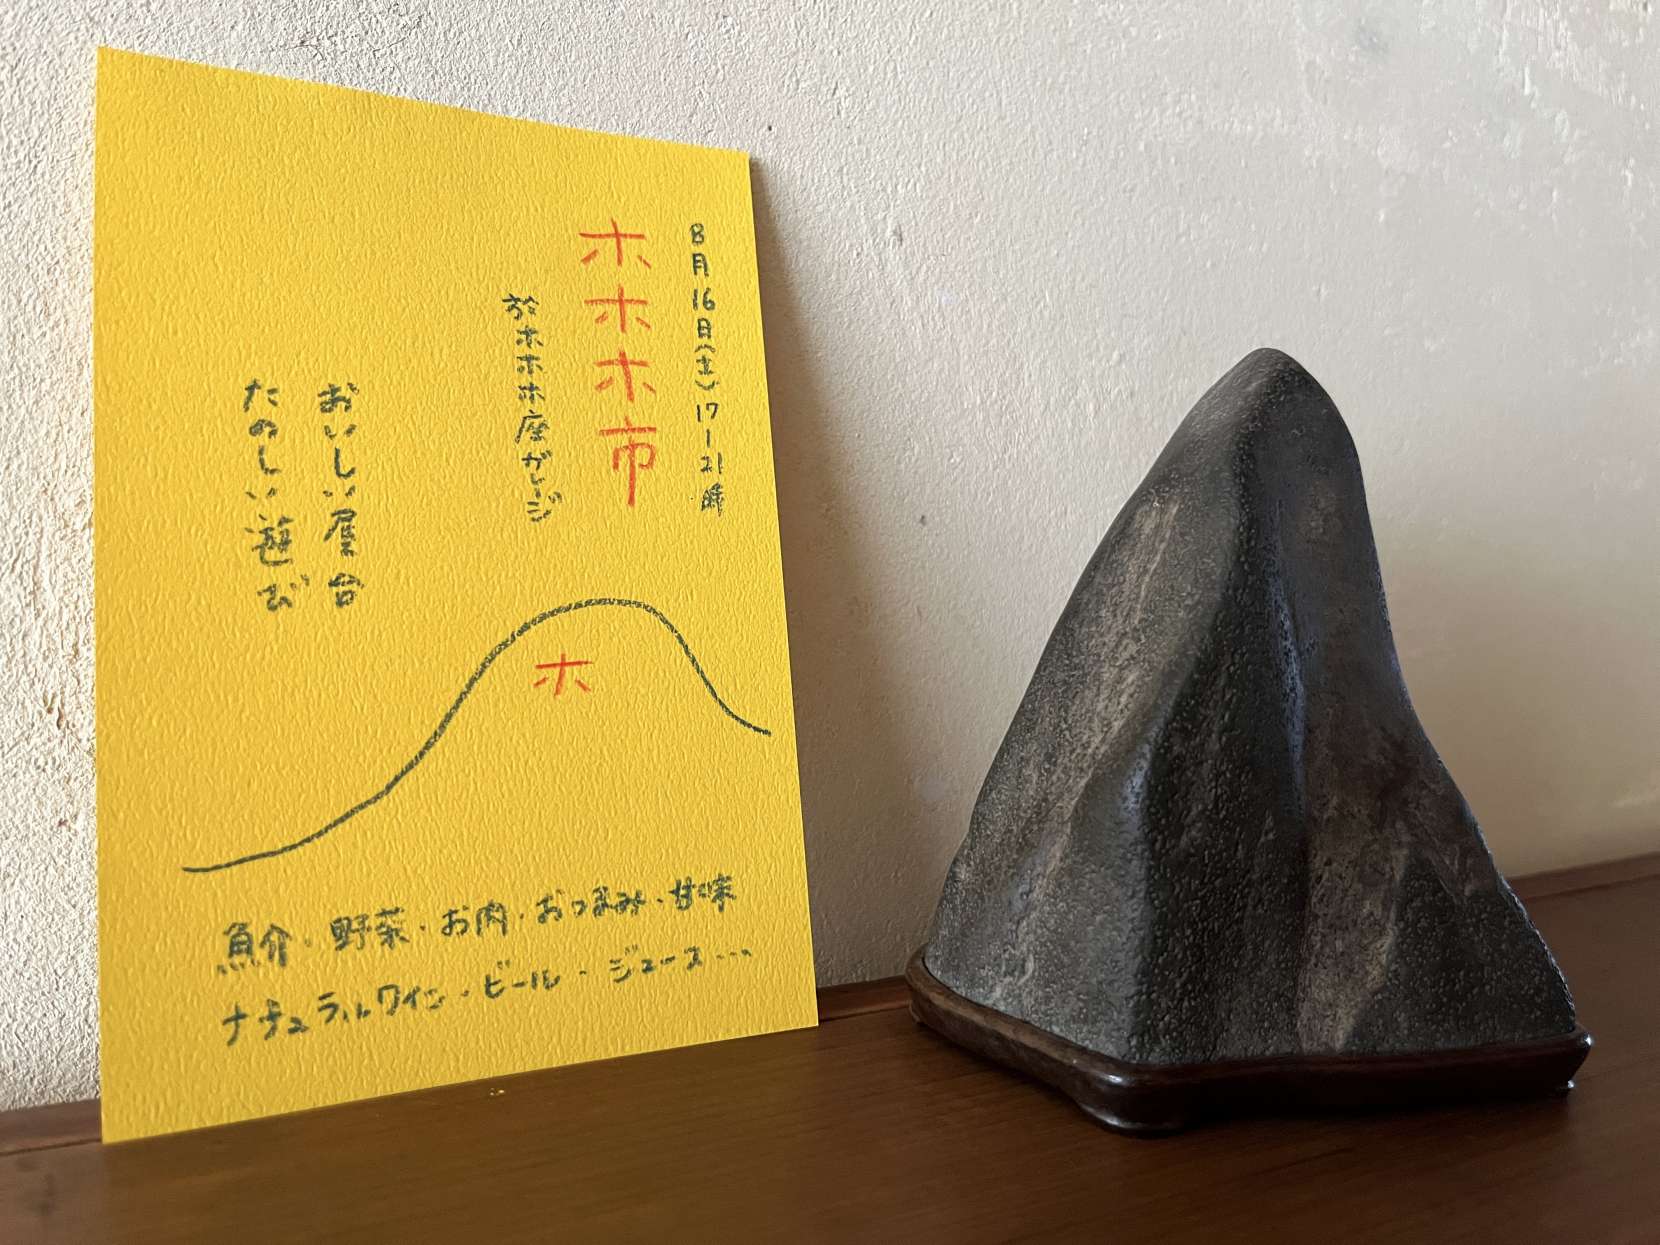 8月16日(土)17-21時
ホホホ市
於ホホホ座ガレージ
おいしい屋台
たのしい遊び
ホ
魚介・野菜・お肉・おつまみ・甘味
ナチュラルワイン・ビール・ジュース…